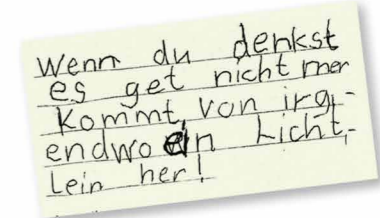 Wenn du denkst
es get nicht mer
kommt, von irg-
endwo ein Licht-
lein her!